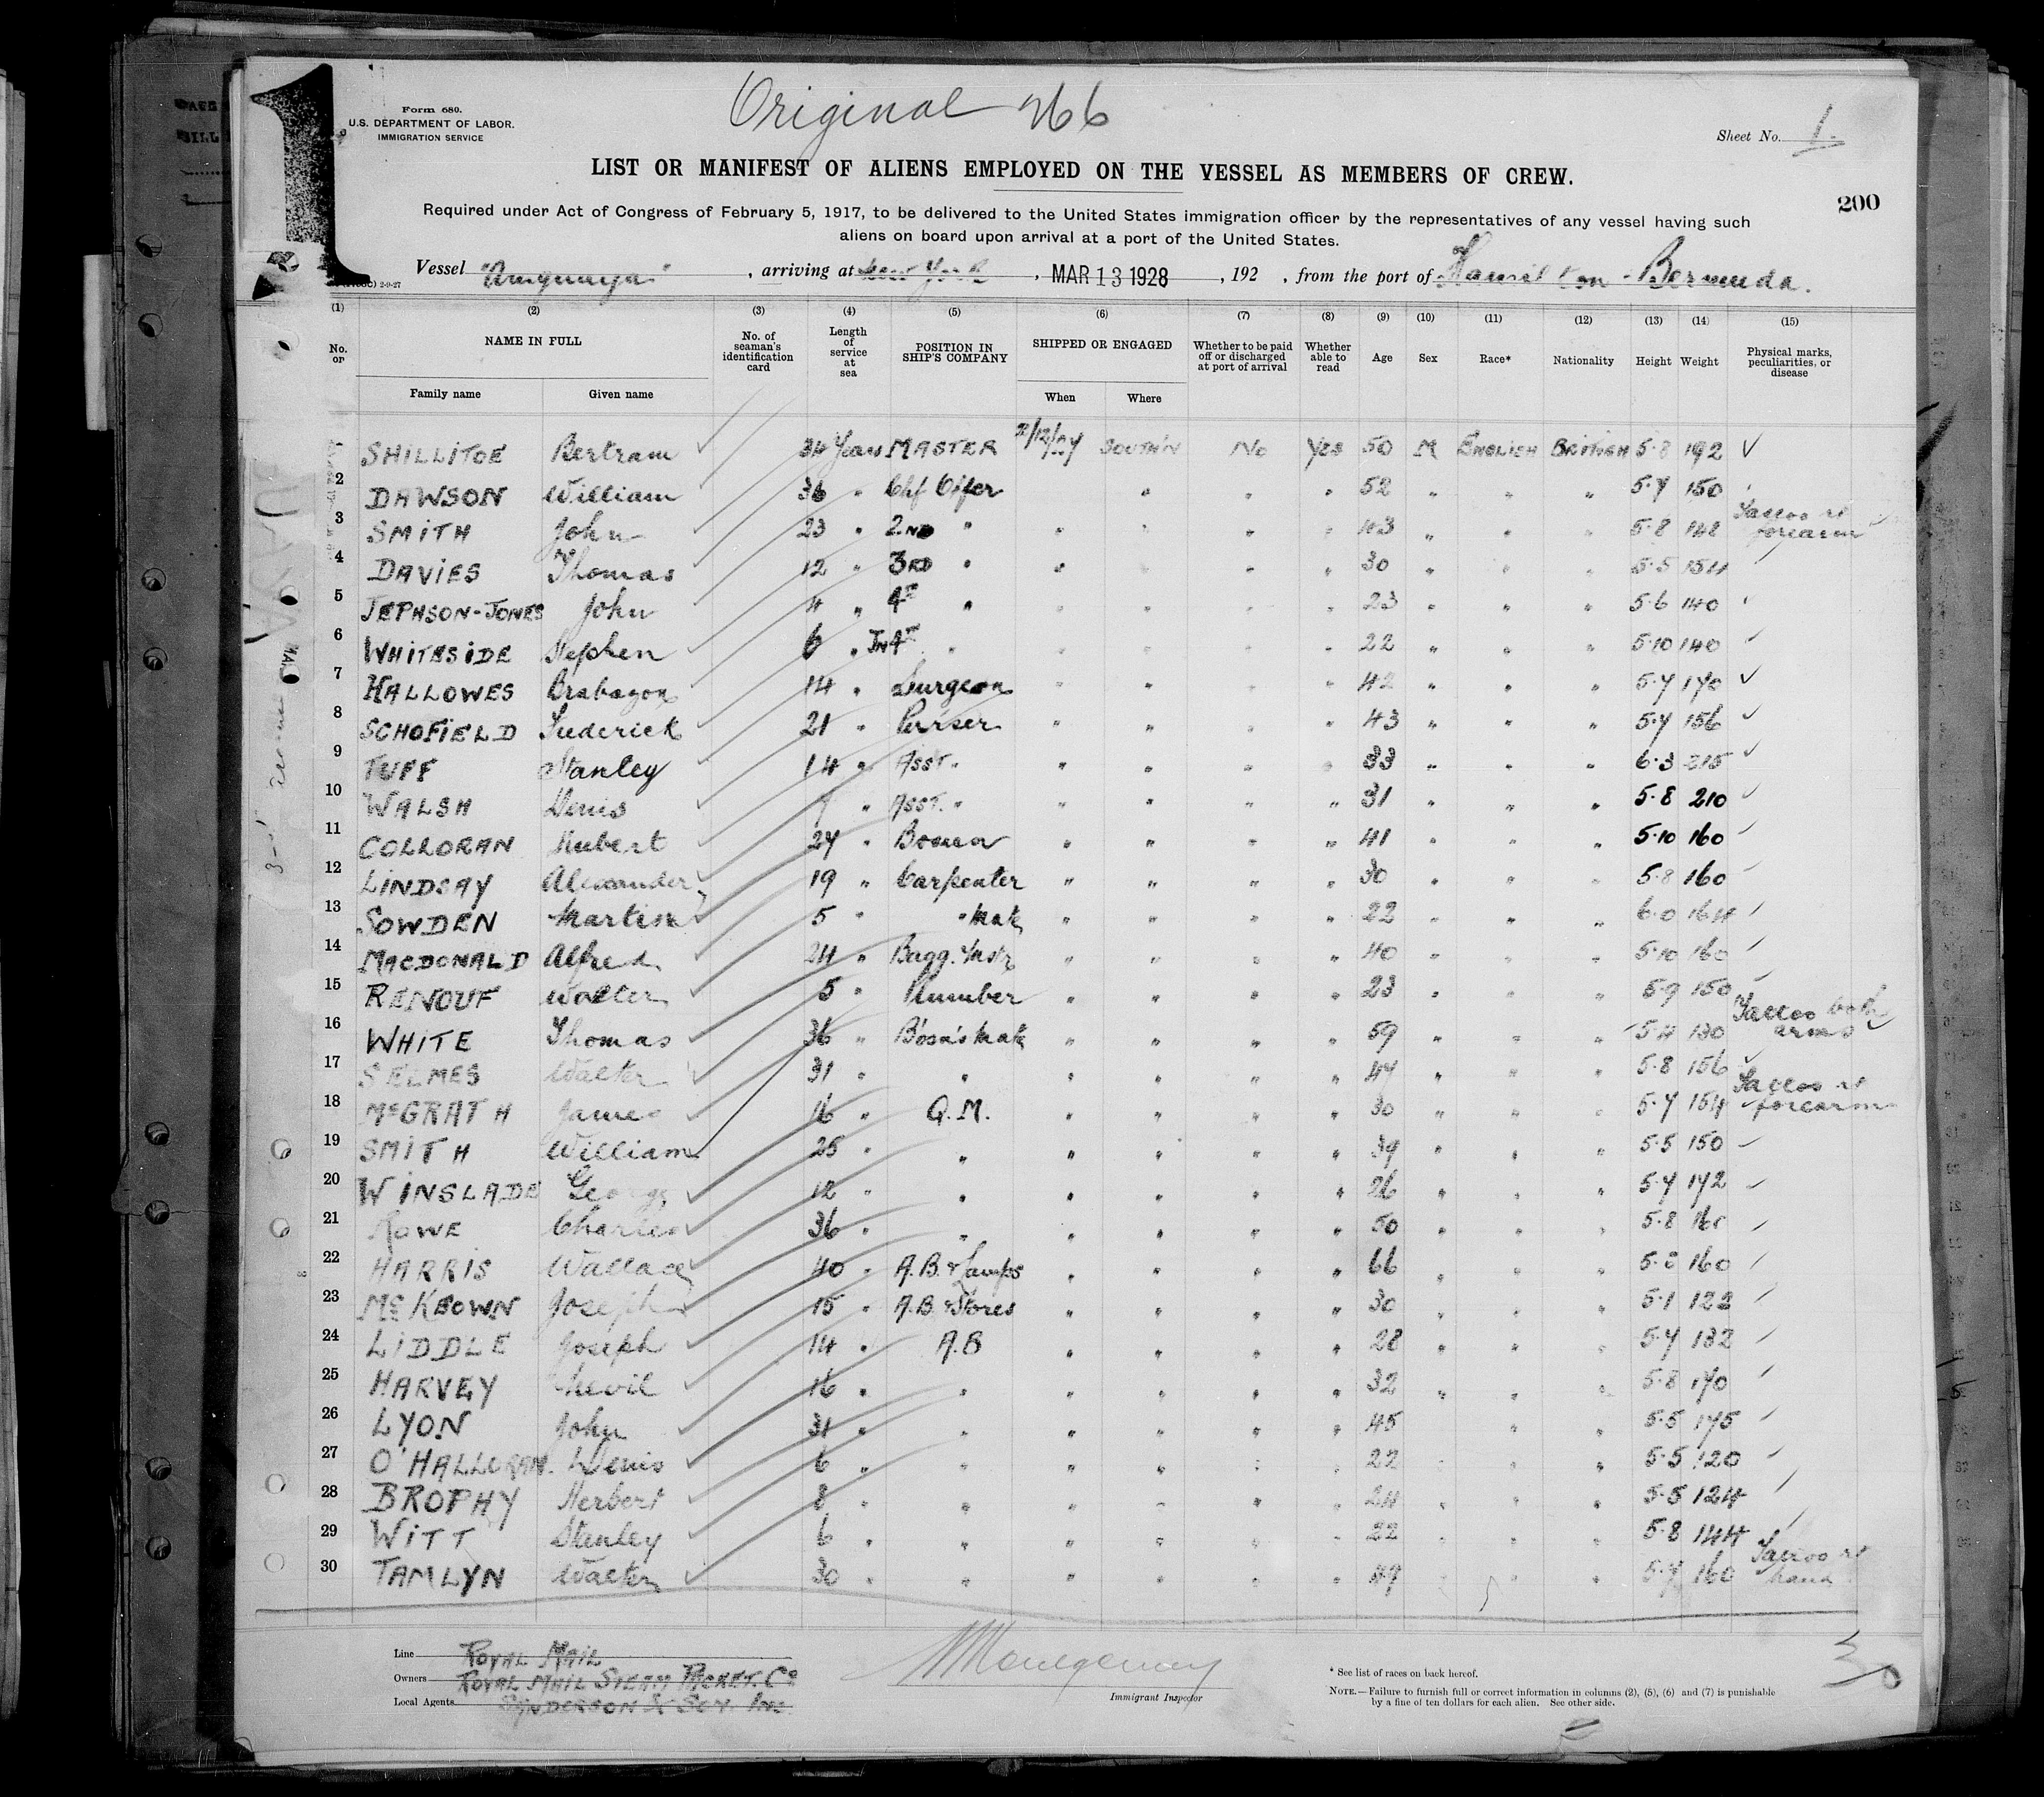 Original 266
Form 680.
U.S. DEPARTMENT OF LABOR.
IMMIGRATION SERVICE
Sheet No. 1.
LIST OR MANIFEST OF ALIENS EMPLOYED ON THE VESSEL AS MEMBERS OF CREW.
200
Required under Act of Congress of February 5, 1917, to be delivered to the United States immigration officer by the representatives of any vessel having such
aliens on board upon arrival at a port of the United States.
Vessel "Araguaya", arriving at New York, MAR 13 1928, 192 , from the port of Hamilton - Bermuda.
2-9-27
(1) (2) (3) (4) (5) (6) (7) (8) (9) (10) (11) (12) (13) (14) (15)
No. or NAME IN FULL No. of seaman's identification card Length of service at sea POSITION IN SHIP'S COMPANY SHIPPED OR ENGAGED Whether to be paid off or discharged at port of arrival Whether able to read Age Sex Race* Nationality Height Weight Physical marks, peculiarities, or disease
Family name Given name When Where
SHILLITOE Bertram 34 Years MASTER SOUTH'N No Yes 50 M ENGLISH BRITISH 5·8 192 ✓
2 DAWSON William 36 " Chf Offer " " " 52 " " " 5·7 150
3 SMITH John 23 " 2ND " " " " " 43 " " " 5·8 148 Tattoo rt forearm
4 DAVIES Thomas 12 " 3RD " " " " " 30 " " " 5·5 154
5 JEPHSON-JONES John 4 " 4T " " " " " 23 " " " 5·6 140
6 WHITESIDE Stephen 6 " JN 4T " " " " " 22 " " " 5·10 140
7 HALLOWES Brabazon 14 " Surgeon " " " " 42 " " " 5·7 170 ✓
8 SCHOFIELD Frederick 21 " Purser " " " " 43 " " " 5·7 156 ✓
9 TUFF Stanley 14 " ASST. " " " " " 33 " " " 6·3 215 ✓
10 WALSH Denis " ASST. " " " " " 31 " " " 5·8 210 ✓
11 COLLORAN Hubert 27 " Bosun " " " " 41 " " " 5·10 160
12 LINDSAY Alexander 19 " Carpenter " " " " 30 " " " 5·8 160
13 SOWDEN Martin 5 " " Mate " " " " 22 " " " 6·0 164
14 MACDONALD Alfred 24 " Bagg. Mstr " " " " 40 " " " 5·10 160
15 RENOUF Walter 5 " Plumber " " " " 23 " " " 5·9 150
16 WHITE Thomas 36 " Bosn's Mate " " " " 59 " " " 5·4 130 Tattoo both arms
17 SELMES Walter 31 " " " " " " 47 " " " 5·8 156
18 McGRATH James 16 " Q.M. " " " " 30 " " " 5·7 154 Tattoo rt forearm
19 SMITH William 25 " " " " " " 39 " " " 5·5 150
20 WINSLADE George 12 " " " " " " 26 " " " 5·7 172
21 ROWE Charles 36 " " " " " " 50 " " " 5·8 160
22 HARRIS Wallace 40 " A.B. & Lamps " " " " 66 " " " 160
23 McKEOWN Joseph 15 " A.B. & Stores " " " " 30 " " " 5·1 122
24 LIDDLE Joseph 14 " A.B " " " " 28 " " " 5·7 132
25 HARVEY Nevil 16 " " " " " " 32 " " " 5·8 170
26 LYON John 31 " " " " " " 45 " " 5·5 175
27 O'HALLORAN Denis 6 " " " " " " 22 " " " 5·5 120
28 BROPHY Herbert 8 " " " " " " 24 " " " 5·5 124
29 WITT Stanley 6 " " " " " " 22 " " " 5·8 144
30 TAMLYN Walter 30 " " " " " " 49 " " 5·7 160 Tattoo rt hand
Line ROYAL MAIL
Owners ROYAL MAIL STEAM PACKET. Co
Local Agents SANDERSON & SON. INC
Montgomery
Immigrant Inspector
* See list of races on back hereof.
NOTE.—Failure to furnish full or correct information in columns (2), (5), (6) and (7) is punishable
by a fine of ten dollars for each alien. See other side.
30